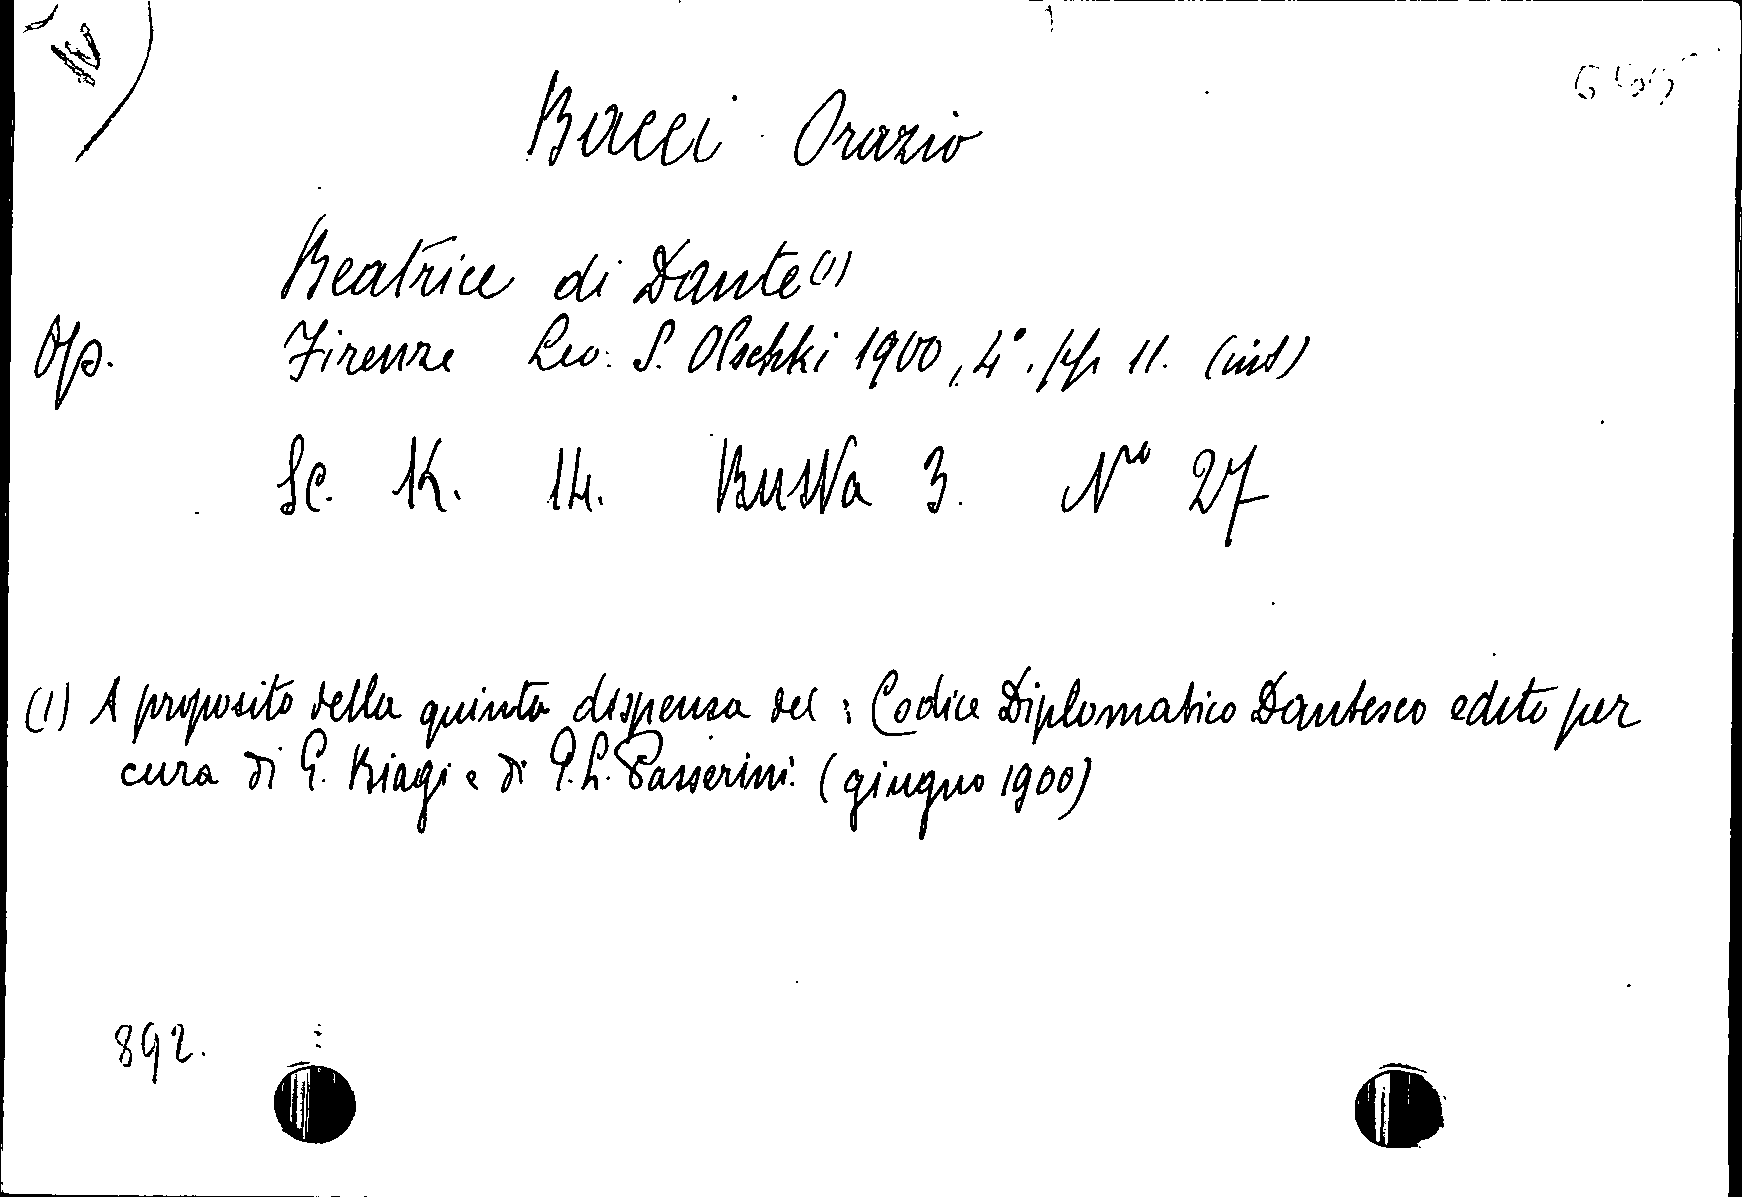 Bacci Orazio
Beatrice di Dante (1)
Op. Firenze Leo: S. Olschki 1900, 4°. pp 11. (int)
Sc. K. 14. Busta 3. Nro 27
(1) A proposito della quinta dispensa del: Codice Diplomatico Dantesco edito per
cura di G. Biagi e di G. L. Passerini. (giugno 1900)
892.